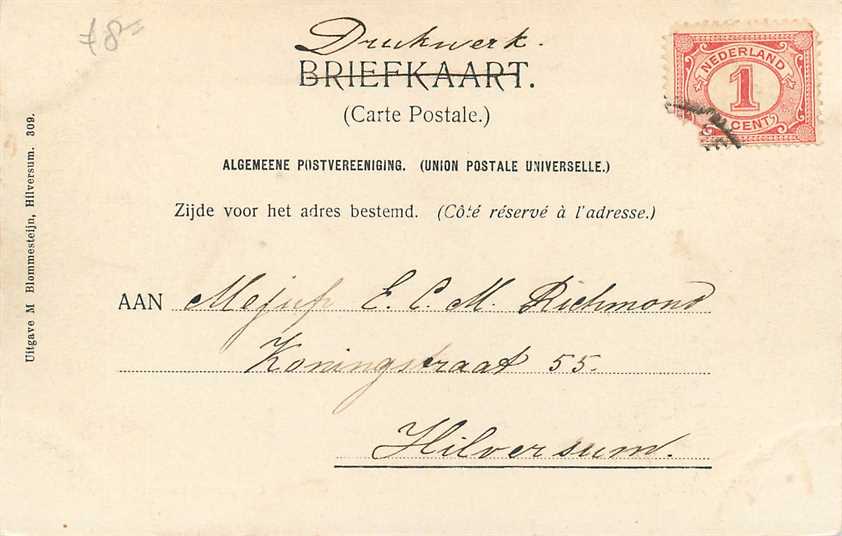 f 8=
Drukwerk.
BRIEFKAART.
(Carte Postale.)
NEDERLAND
1
CENT
ALGEMEENE POSTVEREENIGING. (UNION POSTALE UNIVERSELLE.)
Zijde voor het adres bestemd. (Côté réservé à l'adresse.)
AAN Mejufr E. C. M. Richmond
Koningstraat 55.
Hilversum.
Uitgave M Blommesteijn, Hilversum. 309.